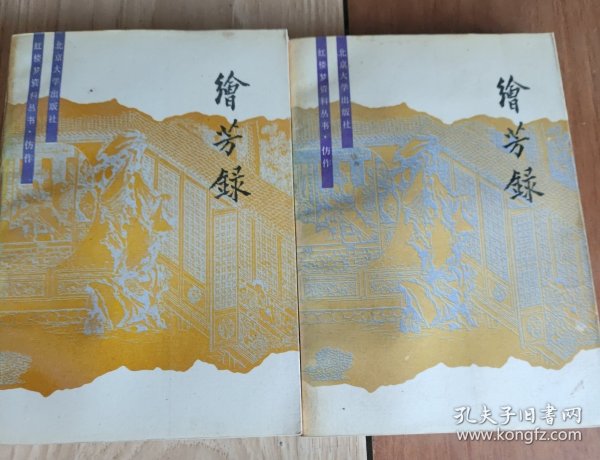 北京大学出版社
红楼梦资料丛书·仿作
繪芳録
北京大学出版社
红楼梦资料丛书·仿作
繪芳録
孔夫子旧书网
www.kongfz.com